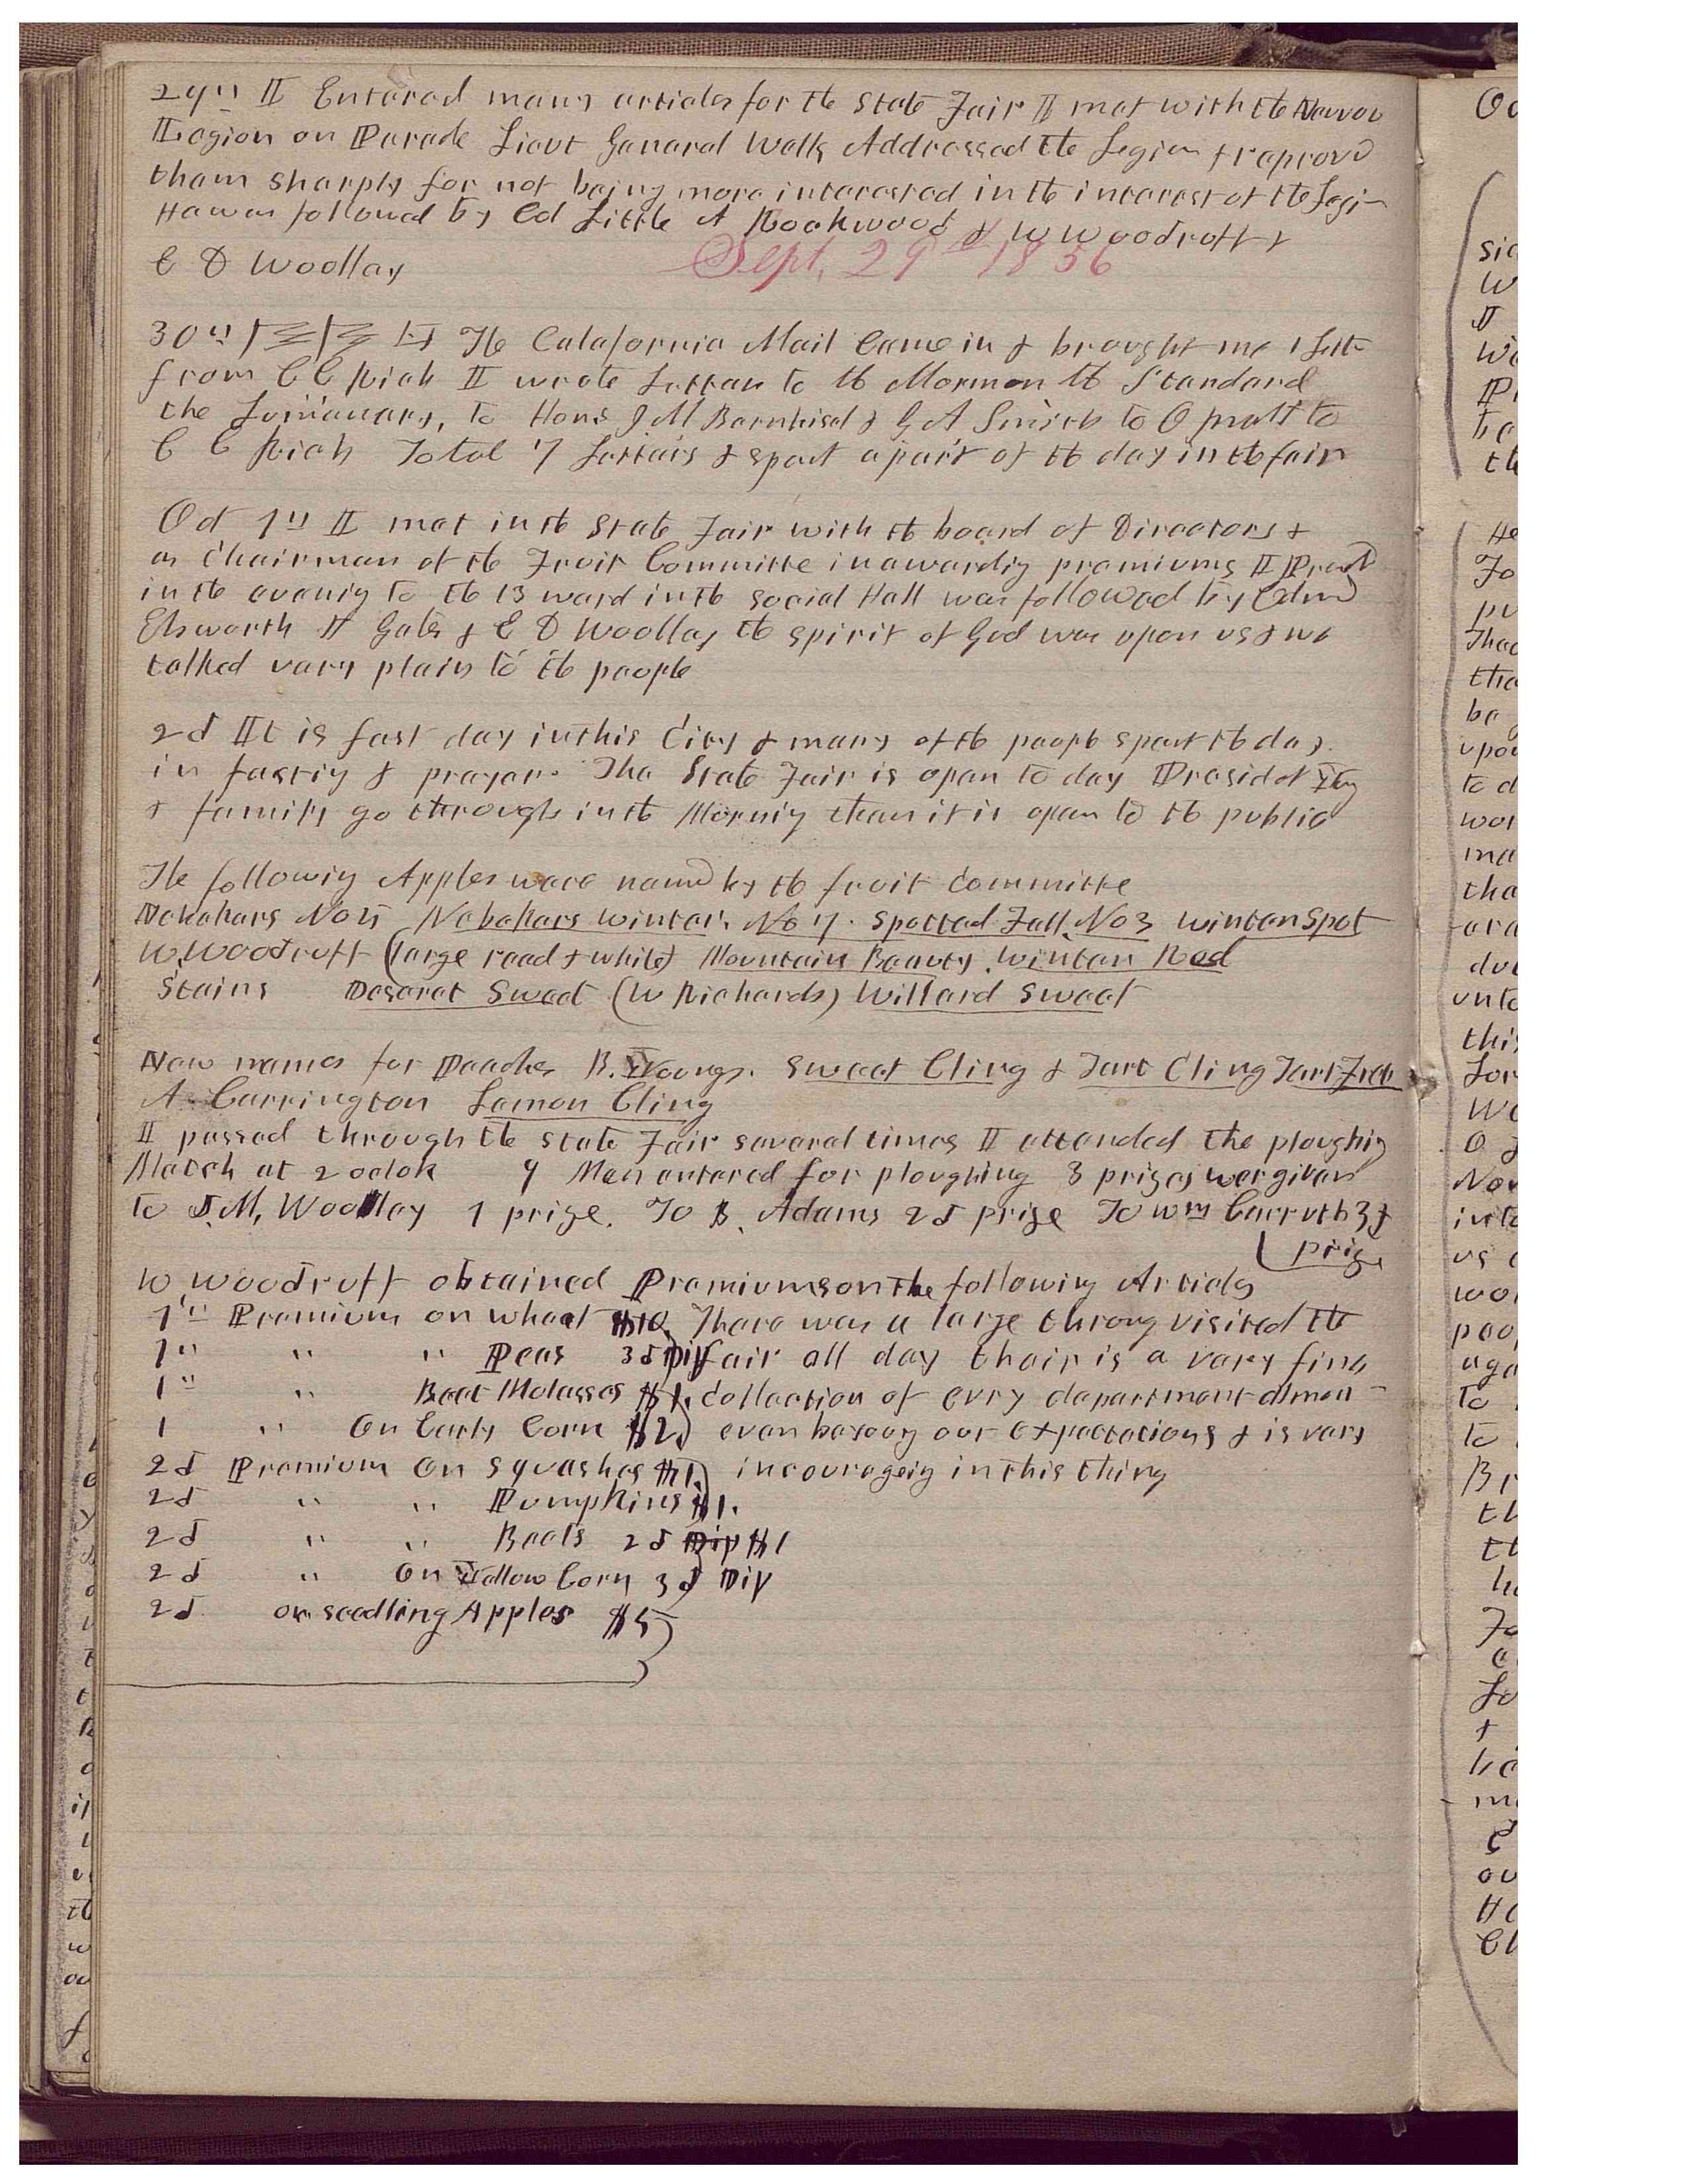 29th I Entered many articles for the State Fair I met with the Nauvoo
Legion on Parade Lieut General Wells Addressed the Legion & reproved
them sharply for not being more interested in the interest of the Legion
He was followed by Col Little A Rockwood & W Woodruff &
E D Woolley
Sept. 29th 1856
30th The Calafornia Mail Came in & brought me 1 letter
from C C Rich I wrote Letters to the Mormon the Standard
the Luminary, to Hons J M Bernhisel & G A Smith to O Pratt to
C C Rich Total 7 Letters & spent a part of the day in the fair
Oct 1st I met in the State Fair with the board of Directors &
as Chairman of the Fruit Committee in awardig premiums I Preachd
in the evenig to the 13 ward in the Social Hall was followed by Edmd
Elsworth H Gates & E D Woolley the spirit of God was upon us & we
talked very plain to the people
2d It is fast day in this City & many of the people spent the day
in fastig & prayer. The State Fair is open to day Presidet Young
& family go through in the Mornig then it is open to the public
The followig Apples were named by the fruit Committee
Nebekers No 5 Nebekers winter. No 7. Spotted Fall. No 3 winter Spot
W. Woodruff (large read & white) Mountain Beauty. winter Red
Stains Deseret Sweet (W Richards) Willard Sweet
New names for Peaches B. Youngs. Sweet Cling & Tart Cling Tart Free
A Carrington Lemon Cling
I passed through the State Fair several times I attended the ploughig
Match at 2 oclok 9 Men entered for ploughing 3 prizes wer given
to J. M. Woolley 1 prize. To B. Adams 2d prize To Wm Carruth 3d
prize
W Woodruff obtained Premiums on the followig Articles
1st Premium on wheat $10. There was a large throng visited the
1st " " Peas 3d Dip fair all day their is a very fine
1st " Beet Molasses $1. collection of evry department almost
1 " On Early Corn $2) even beyong our expectations & is very
2d Premium On Squashes $1.) incouragein in this thing
2d " " Pumpkins $1.
2d " " Beets 2d Dip $1
2d " On Yellow Corn 3d Dip
2d on seedling Apples $5